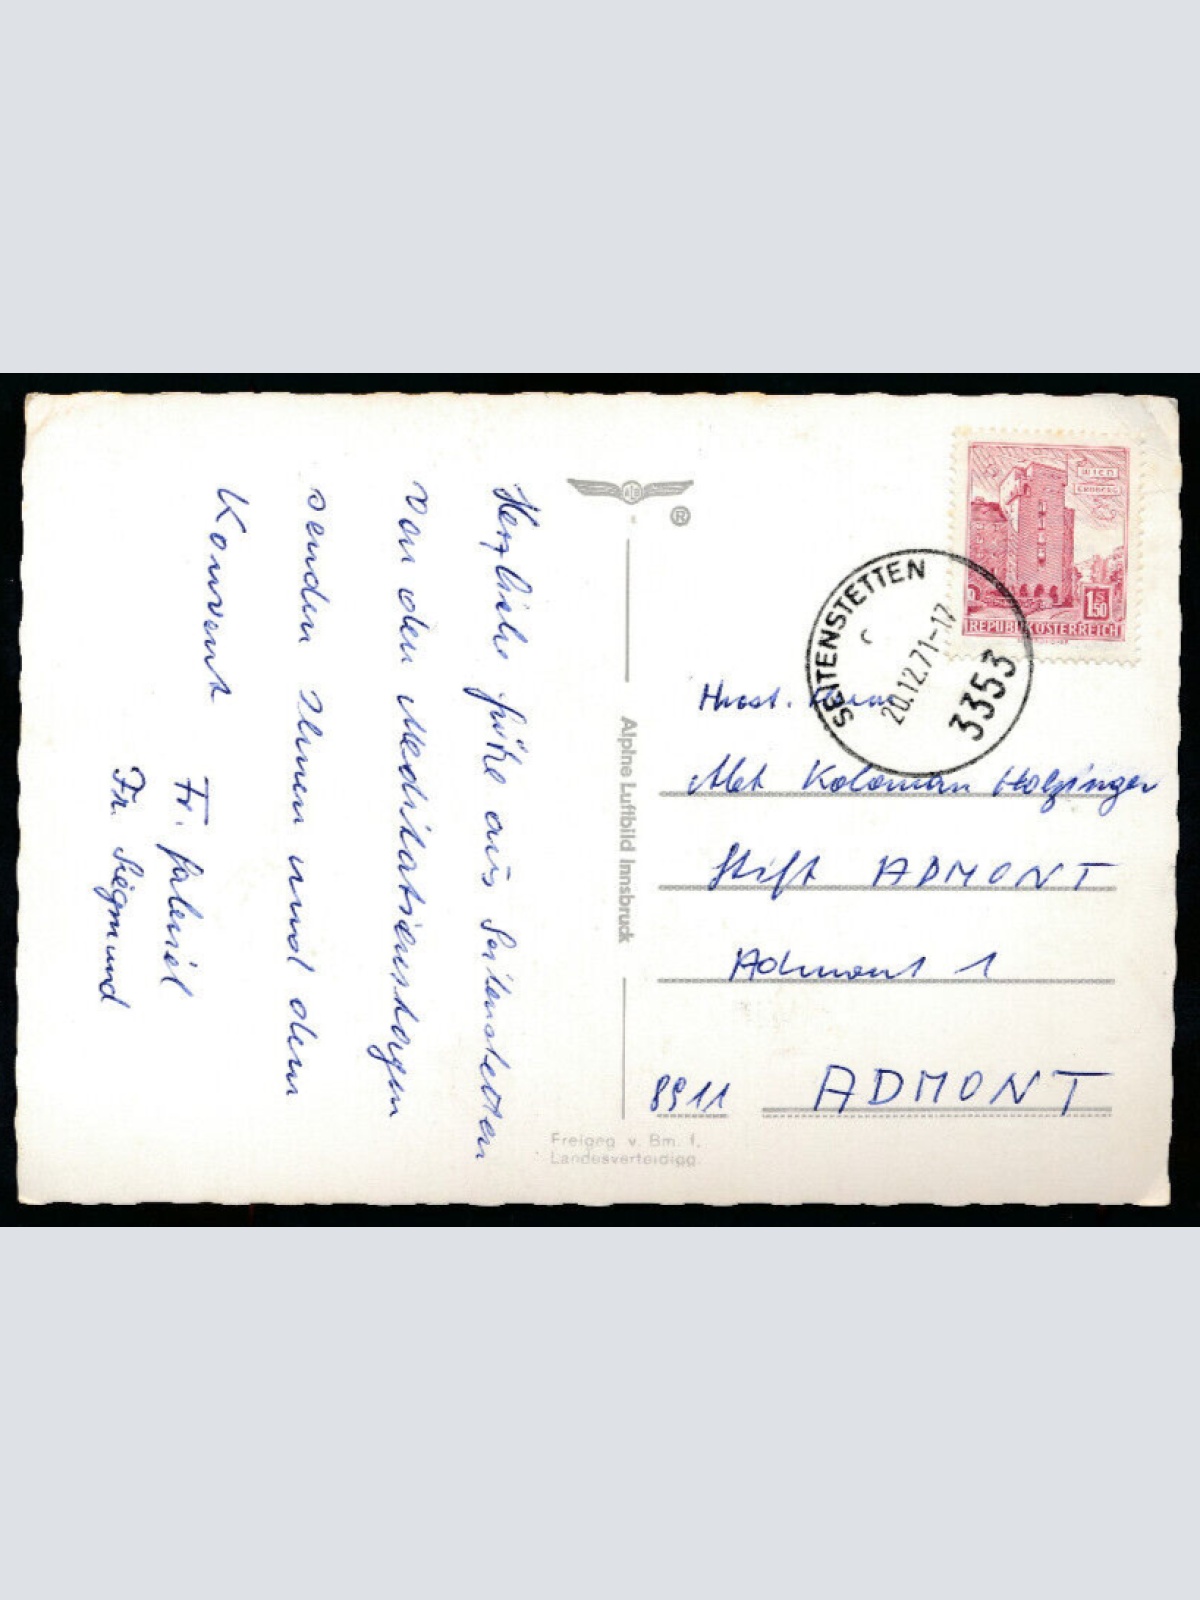 Herzliche Grüße aus Seitenstetten
von den Meditationstagen
senden Ihnen und dem
Konvent
Fr. Gabriel
Fr. Siegmund
®
Alpine Luftbild Innsbruck
Freigeg v. Bm. f.
Landesverteidigg.
WIEN
ERDBERG
1S50
REPUBLIK ÖSTERREICH
SEITENSTETTEN
20.12.71-17
3353
Hwst. Herrn
Abt Koloman Holzinger
Stift ADMONT
Admont 1
8911 ADMONT